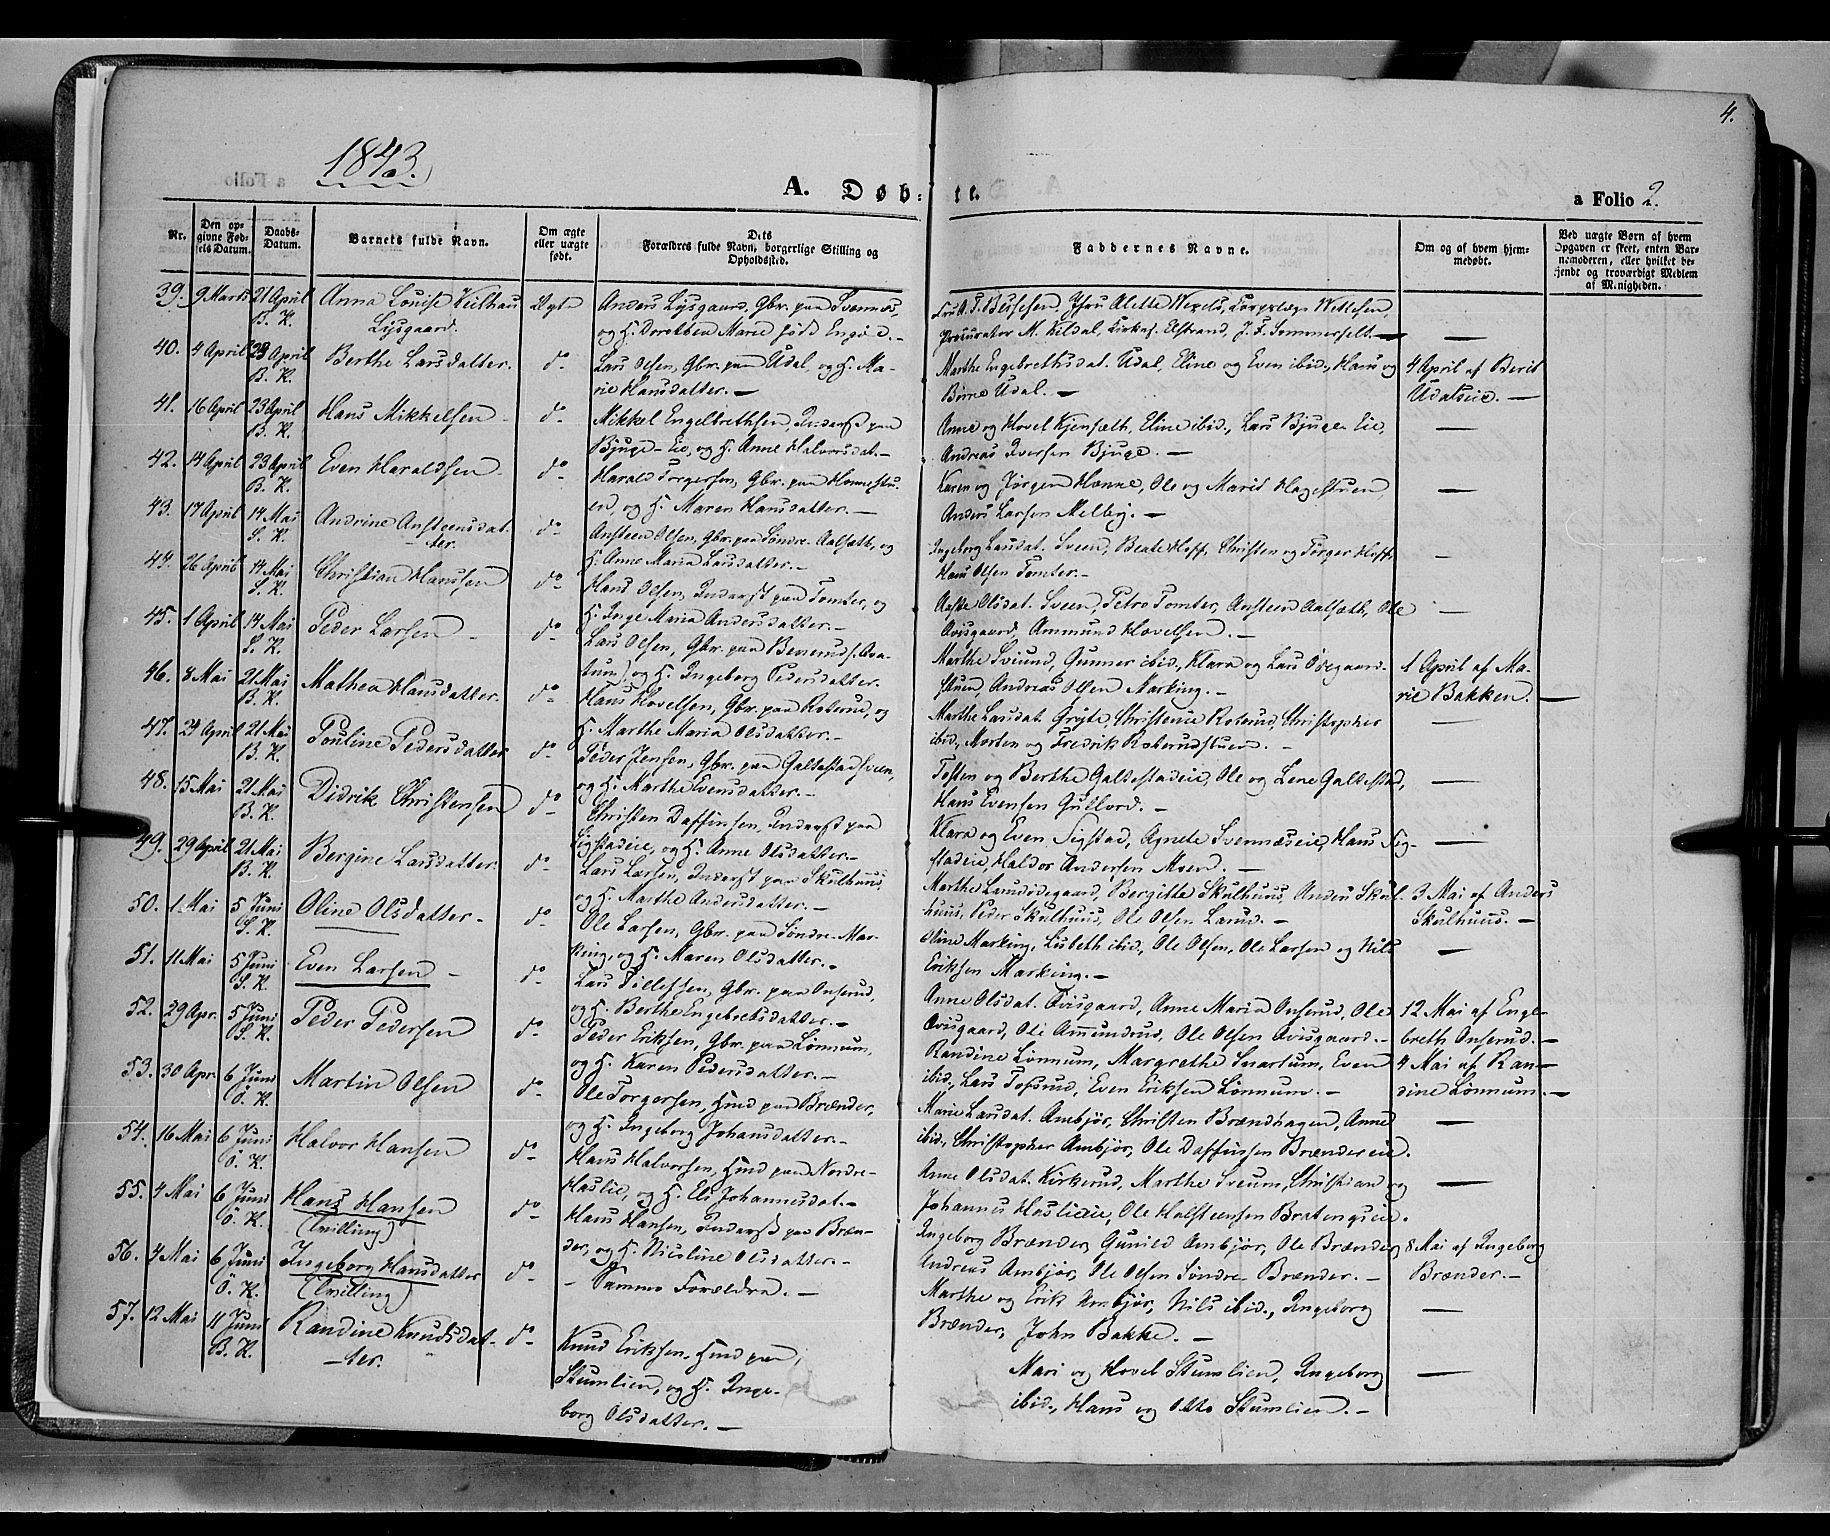 4.
1843.
A. Døb- te.
a Folio 2.
Nr.
Den op-
givne Fød-
sels Datum.
Daabs-
Datum.
Barnets fulde Navn.
Om ægte
eller uægte
født.
Dets
Forældres fulde Navn, borgerlige Stilling og
Opholdssted.
Faddernes Navne.
Om og af hvem hjem-
medøbt.
Ved uægte Børn af hvem
Opgaven er skeet, enten Bar-
nemoderen, eller hvilket be-
kjendt og troværdigt Medlem
af Menigheden.
39. 9 Marts 21 April Anna Louise Keilhau Ægte Anders Lysgaard, Gbr. paa Svennæs,
B. K. Lysgaard. og H. Dorethea Marie født Engøe. -
Jfru Alette Wexels,
Procurator M. Kildal, Kirkes. Elstrand, J. F. Sommerfelt. -
40. 4 April 23 April Berthe Larsdatter. do- Lars Olsen, Gbr. paa Udal, og H. Ma-
B. K. rie Hansdatter. -
Marthe Engebrethsdat. Udal, Eline og Even ibid., Hans og 4 April af Berit
Børre Udal. - Udalseie. -
41. 16 April 23 April Hans Mikkelsen - do- Mikkel Engelbrethsen, Inderst paa
B. K. Bjuge-Eie, og H. Anne Halvorsdat. -
Anne og Hovel Kjensæth, Eline ibid., Lars Bjuge Eie, -
Andreas Iversen Bjuge. -
42. 14 April 23 April Even Haraldsen - do- Harald Torgersen, Gbr. paa Hønnestu-
B. K. en, og H. Maren Hansdatter. -
Karen og Jørgen Hønne, Ole og Marie Hagestuen, -
Anders Larsen Melby. -
43. 17 April 14 Mai Andrine Ansteensdat- do- Ansteen Olsen, Gbr. paa Søndre-Aalsæth, og
S. K. ter. H. Anne Maria Larsdatter. -
Ingeborg Larsdat. Sveen, Beate Hoff, Christen og Torger Hoff, -
Hans Olsen Tomter. -
44. 26 April 14 Mai Christian Hansen do- Hans Olsen, Inderst paa Tomter, og
S. K. H. Inge Maria Andersdatter. -
Aaste Olsdat. Sveen, Petra Tomter, Ansteen Aalsæth, Ole -
Qvisgaard, Ammund Hovelsen. -
45. 1 April 14 Mai Peder Larsen - do- Lars Olsen, Gbr. paa Bererud (Sva-
S. K. tum), og H. Ingeborg Pedersdatter.
Marthe Sviund, Gunner ibid., Klara og Lars Ødegaard- 1 April af Ma-
stuen, Andreas Olsen Marking. - rie Bakken. -
46. 8 Mai 21 Mai Mathea Hansdatter. do- Hans Hovelsen, Gbr. paa Roterud, og
B. K. H. Marthe Maria Olsdatter. -
Marthe Larsdat. Gryte, Christence Roterud, Christopher -
ibid., Morten og Fredrik Roterudstuen. -
47. 24 April 21 Mai Pouline Pedersdatter do- Peder Jensen, Gbr. paa Galtestadsveen,
B. K. og H. Marthe Evensdatter. -
Tosten og Berthe Galtestadeie, Ole og Lene Galtestad, -
Hans Evensen Gullord. -
48. 15 Mai 21 Mai Didrik Christensen do- Christen Daffinsen, Inderst paa
B. K. Sigstadeie, og H. Anne Olsdatter. -
Klara og Even Sigstad, Agnete Svennæseie, Hans Sig- -
stadeie, Haldor Andersen Moen. -
49. 29 April 21 Mai Bergine Larsdatter. do- Lars Larsen, Inderst paa Skulhuus,
B. K. og H. Marthe Andersdatter. -
Marthe Larsødegaard, Bergitte Skulhuus, Anders Skul- 3 Mai af Anders
huus, Peder Skulhuus, Ole Olsen Larud. - Skulhuus. -
50. 1 Mai 5 Juni Oline Olsdatter. - do- Ole Larsen, Gbr. paa Søndre-Mar-
S. K. king, og H. Maren Olsdatter. -
Eline Marking, Lisbeth ibid., Ole Olsen, Ole Larsen og Nils -
Eriksen Marking. -
51. 11 Mai 5 Juni Even Larsen - do- Lars Tollefsen, Gbr. paa Onserud,
S. K. og H. Berthe Engebretsdatter. -
Anne Olsdat. Qvisgaard, Anne Maria Onserud, Ole 12 Mai af Enge-
Qvisgaard, Ole Ammundrud, Ole Olsen Qvisgaard. - breth Onserud. -
52. 29 Apr. 5 Juni Peder Pedersen do- Peder Eriksen, Gbr. paa Lønnum,
S. K. og H. Karen Pedersdatter. -
Randine Lønnum, Margrethe Snartum, Even 4 Mai af Ran-
ibid., Lars Tofsrud, Even Eriksen Lønnum. - dine Lønnum. -
53. 30 Apr. 6 Juni Martin Olsen do- Ole Torgersen, Hmd paa Brænder,
Ö. K. og H. Ingeborg Johansdatter. -
Marie Larsdat. Ambjør, Christen Brændhagen, Anne -
ibid., Christopher Ambjør, Ole Daffinsen Brændereie.
54. 16 Mai 6 Juni Halvor Hansen do- Hans Halvorsen, Hmd paa Nordre-
Ö. K. Haslie, og H. Eli Johannesdat. -
Anne Olsdat. Kirkerud, Marthe Sveum, Christian og -
Johannes Haslieeie, Ole Halsteensen Bratengseie.
55. 4 Mai 6 Juni Hans Hansen do- Hans Hansen, Inderst paa Bræn-
Ö. K. (Tvilling) der, og H. Nicoline Olsdatter. -
Ingeborg Brænder, Gunild Ambjør, Ole Brænder, 8 Mai af Ingeborg
Andreas Ambjør, Ole Olsen Søndre-Brænder. - Brænder. -
56. 4 Mai 6 Juni Ingeborg Hansdatter do- - Samme Forældre. -
Ö. K. (Tvilling)
Marthe og Erik Ambjør, Nils ibid., Ingeborg -
Brænder, John Bakke. -
57. 12 Mai 11 Juni Randine Knudsdat- do- Knud Eriksen, Hmd paa
B. K. -ter. Stumlien, og H. Inge-
borg Olsdatter. -
Mari og Hovel Stumlien, Ingeborg -
ibid., Hans og Otto Stumlien. -